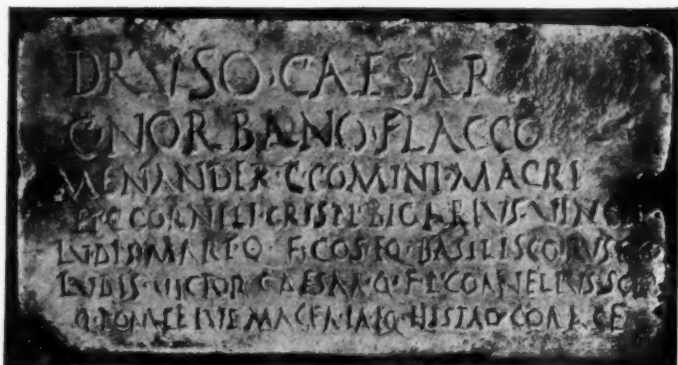 DRVSO·CAESAR
C NORBANO·FLACCO
MENANDER·C COMINI·MACRI
ET C CORNELI·CRISPI·BIGARIVS·VINC
LVDIS MART Q·F·COS·EQ·BASILISCO RVS
LVDIS·VICTOR CAESAR·Q·F·P·CORNELIVS·SCI
Q·POMPEIVS MACER·EQ·HISTRO·CORACE